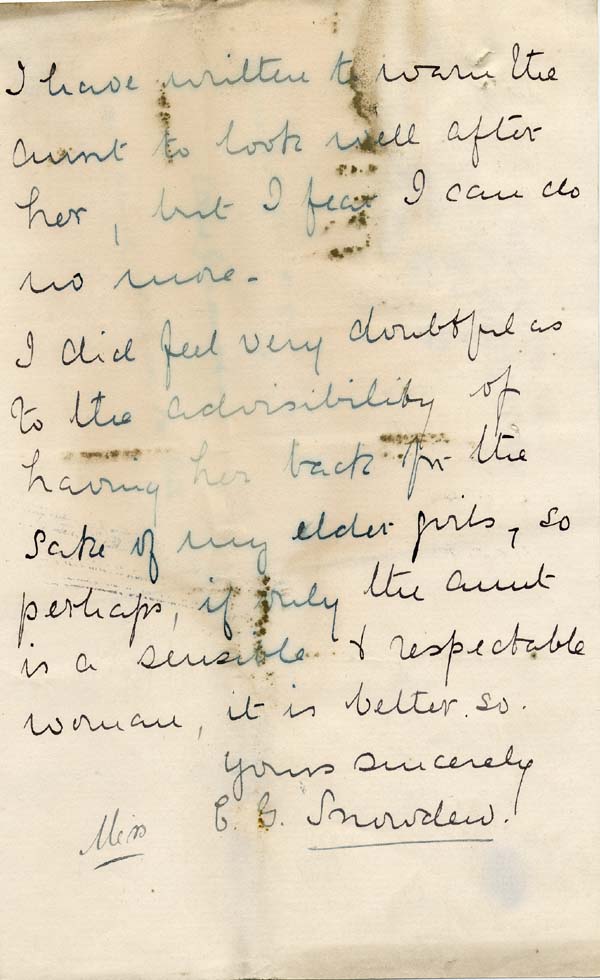 I have written to warn the
aunt to look well after
her, but I fear I can do
no more -
I did feel very doubtful as
to the advisibility of
having her back for the
sake of my elder girls, so
perhaps, if only the aunt
is a sensible & respectable
woman, it is better so.
Yours sincerely
E. G. Snowden.
Miss